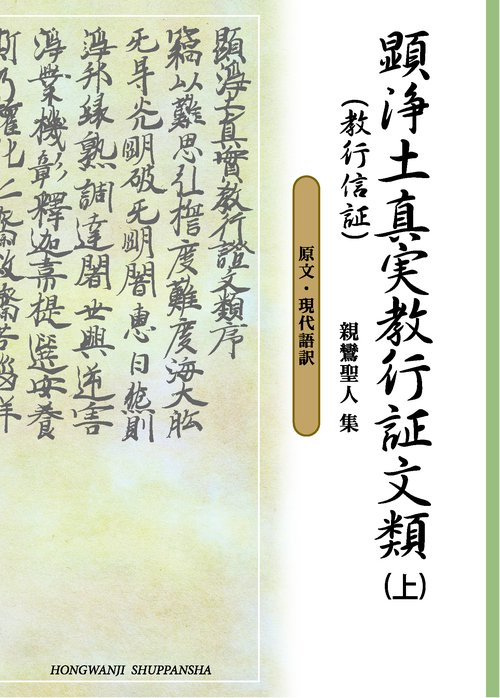 顕浄土真実教行証文類(上)
(教行信証)
親鸞聖人 集
原文・現代語訳
顯淨土真實教行證文類序
竊以難思弘誓度難度海大舩
无㝵光明破无明闇惠日然則
淨邦縁熟調達闍世興逆害
淨業機彰釋迦韋提選安養
HONGWANJI SHUPPANSHA